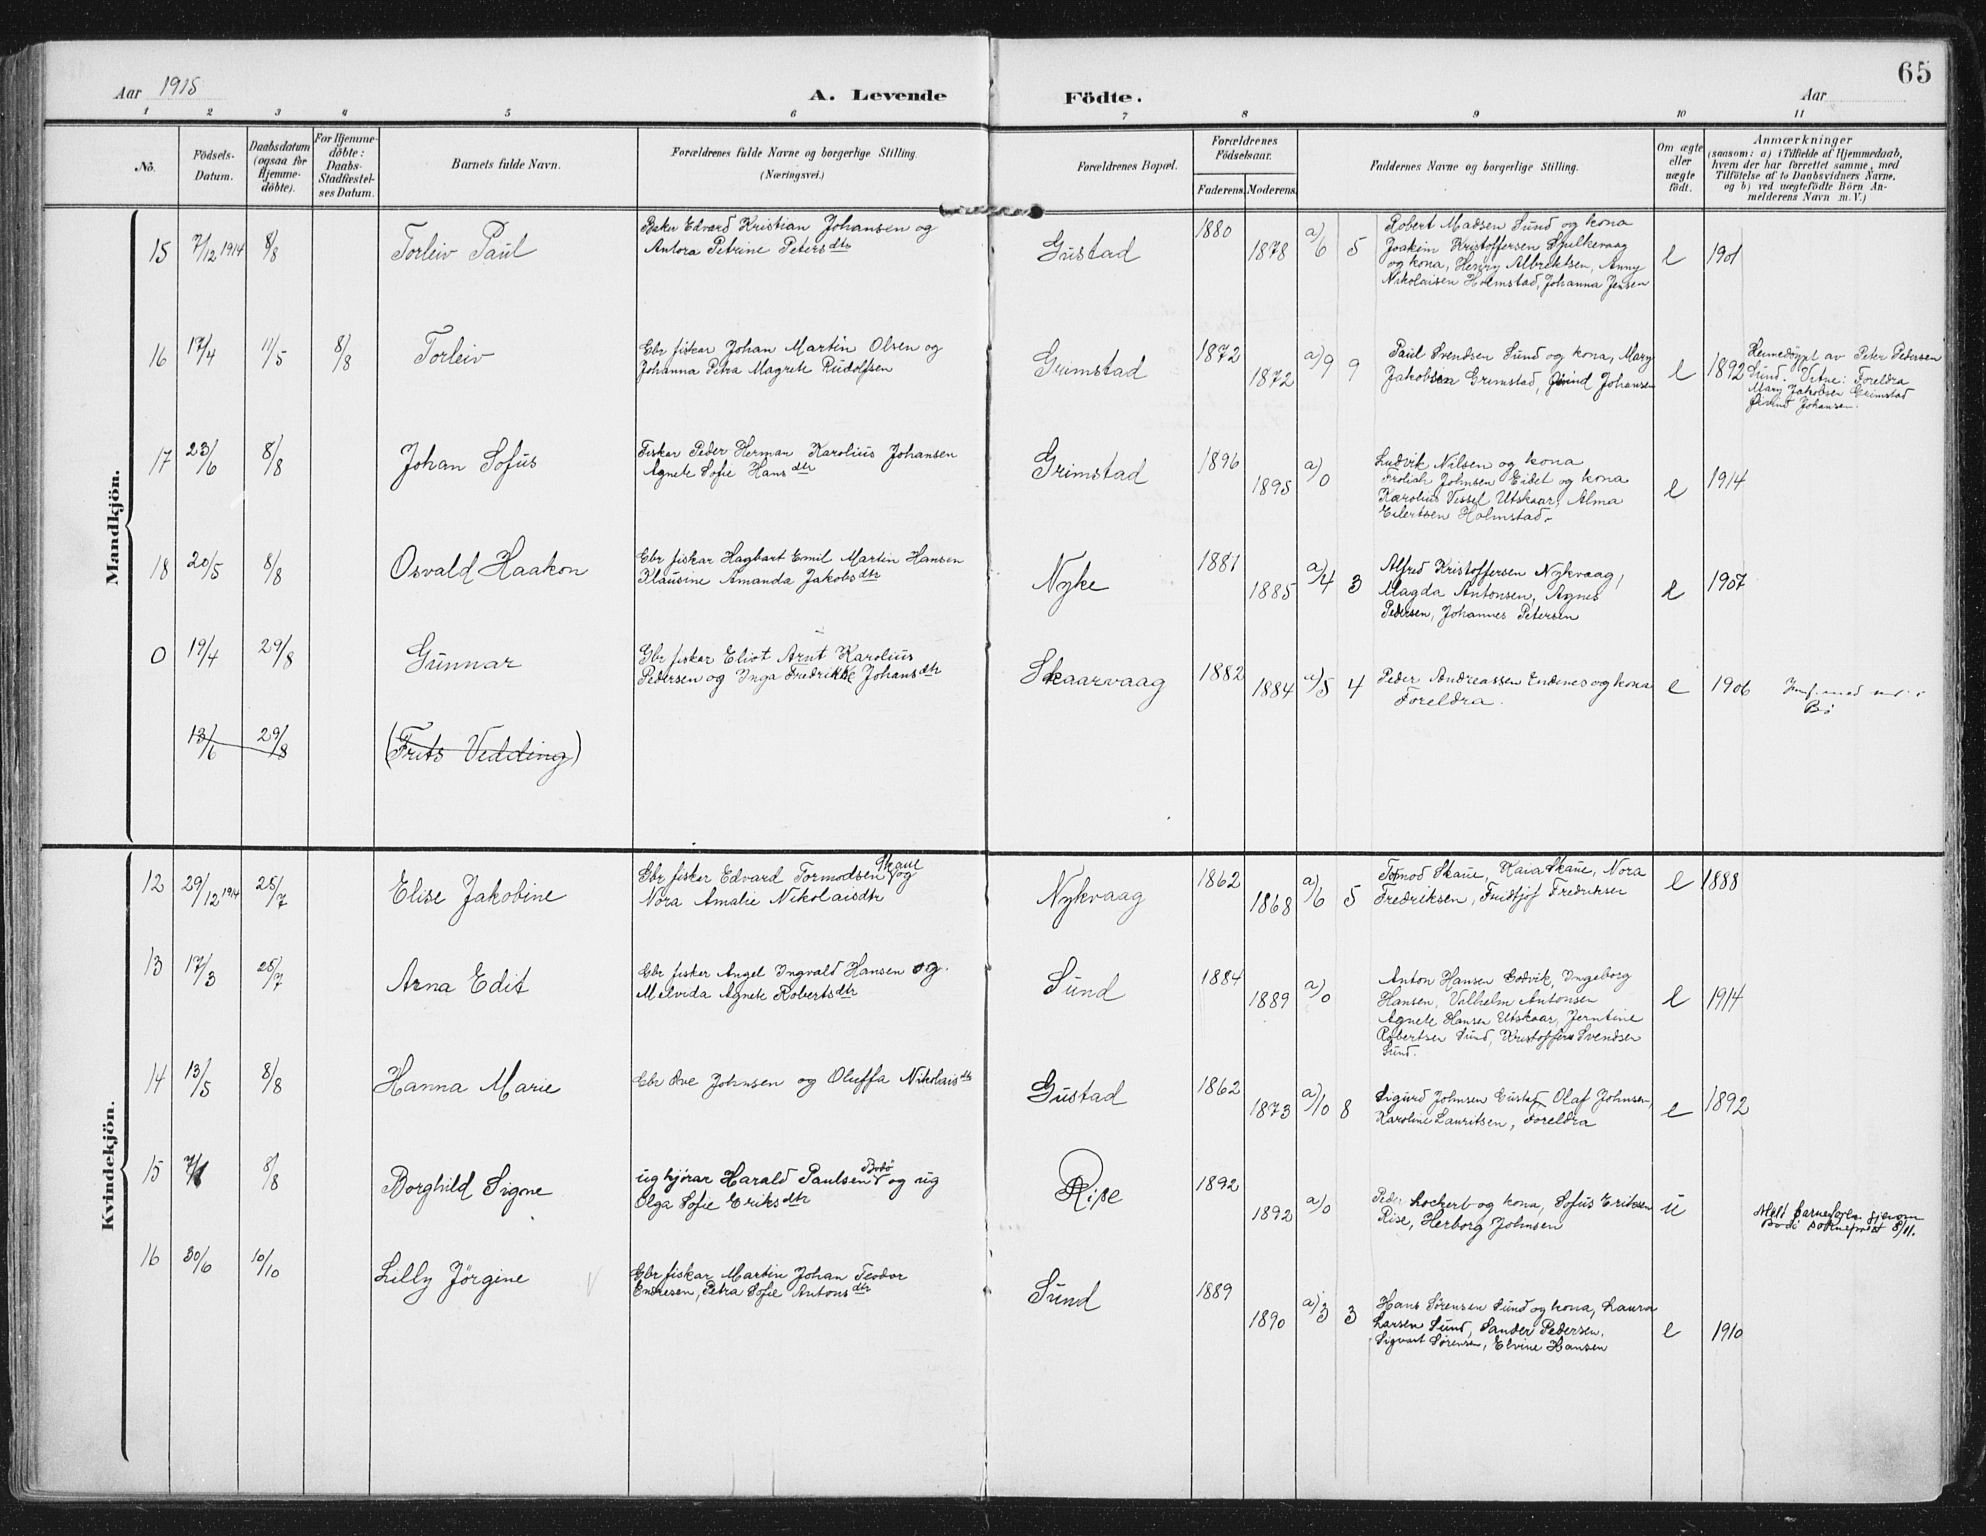 65
Aar 1915
A. Levende Födte.
Aar
1 2 3 4 5 6 7 8 9 10 11
No.
Födsels-Datum.
Daabsdatum (ogsaa for Hjemmedöbte).
For Hjemmedöbte: Daabs-Stadfæstelses Datum.
Barnets fulde Navn.
Forældrenes fulde Navne og borgerlige Stilling. (Næringsvei.)
Forældrenes Bopæl.
Forældrenes Födselsaar.
Faderens. Moderens.
Faddernes Navne og borgerlige Stilling.
Om ægte eller uægte födt.
Anmærkninger
(saasom: a) i Tilfælde af Hjemmedaab, hvem der har forrettet samme, med Tilföielse af to Daabsvidners Navne, og b) ved uægtefödte Börn Anmelderens Navn m. V.)
Mandkjön.
15 7/12 1914 8/8 Torleiv Paul
Baker Edvard Kristian Johansen og
Antora Petrine Petersdtr
Gustad 1880 1878 a/6 5
Robert Madsen Sund og kona
Joakim Kristoffersen Spjulkevaag
og kona, Henry Albrektsen, Anny
Nikolaisen Holmstad, Johanna Jensen
e 1901
16 17/4 11/5 8/8 Torleiv
Gbr fiskar Johan Martin Olsen og
Johanna Petra Magrete Rudolfsen
Grimstad 1872 1872 a/9 9
Paul Svendsen Sund og kona, Mary
Jakobsen Grimstad, Øivind Johansen
e 1892
Heimedøypt av Peter Pedersen
Sund. Vitne: Foreldra
Mary Jakobsen Grimstad
Øivind Johansen.
17 23/6 8/8 Johan Sofus
Fiskar Peder Herman Karolius Johansen
Agnete Sofie Hansdtr
Grimstad 1896 1895 a/0
Ludvik Nilsen og kona
Johnsen Eidet og kona
Karolius Vessel Utskaar, Alma
Eilertsen Holmstad.
e 1914
18 20/5 8/8 Osvald Haakon
Gbr fiskar Hagbart Emil Martin Hansen
Klausine Amanda Jakobsdtr
Nyke 1881 1885 a/4 3
Alfred Kristoffersen Nykvaag,
Magda Antonsen, Agnes
Pedersen, Johannes Petersen
e 1907
0 19/4 29/8 Gunnar
Gbr fiskar Eliot Arnt Karolius
Pedersen og Inga Fredrikke Johansdtr
Skaarvaag 1882 1884 a/5 4
Peder Andreassen Endenes og kona
Foreldra.
e 1906
Bø
13/6 29/8 (Frits Vedding)
Kvindekjön.
12 29/12 1914 25/7 Elise Jakobine
Gbr fiskar Edvard Tormodsen Skaue og
Nora Amalie Nikolaisdtr
Nykvaag 1862 1868 a/6 5
Tormod Skaue, Kaia Skaue, Nora
Fredriksen, Fridtjof Fredriksen
e 1888
13 17/3 25/7 Arna Edit
Gbr fisker Angel Ingvald Hansen og
Melvida Agnete Robertsdtr
Sund 1884 1889 a/0
Anton Hansen Godvik, Ingeborg
Hansen, Vilhelm Antonsen
Agnete Hansen Utskaar, Jerntine
Robertsen Sund, Kristoffer Svendsen
Sund.
e 1914
14 13/5 8/8 Hanna Marie
Gbr Ove Johnsen og Oluffa Nikolaisdtr
Gustad 1862 1873 a/10 8
Sigurd Johnsen Gustad, Olaf Johnsen,
Karoline Lauritsen, Foreldra
e 1892
15 7/1 8/8 Borghild Signe
ug hjórar Harald Paulsen Bodø og ug
Olga Sofie Eriksdtr
Rise 1892 1892 a/0
Peder Lockert og kona, Sofus Eriksen
Rise, Herborg Johnsen
u
Melt barnefaren gjenom
Bodø sokneprest 8/11.
16 30/6 10/10 Lilly Jörgine
Gbr fiskar Martin Johan Teodor
Endresen, Petra Sofie Antonsdtr
Sund 1889 1890 a/3 3
Hans Sørensen Sund og kona, Laura
Larsen Sund, Sander Pedersen,
Sigvart Sørensen, Elvine Hansen
e 1910